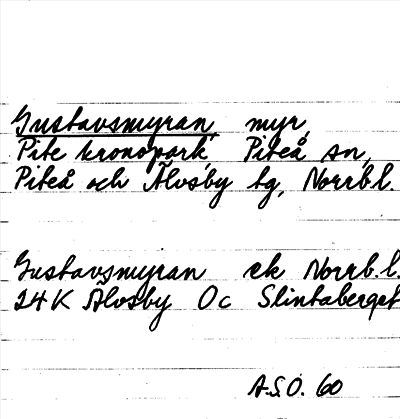 Gustavsmyran, myr,
Pite kronopark, Piteå sn,
Piteå och Älvsby tg, Norrb.l.
Gustavsmyran ek Norrb.l.
24K Älvsby 0c Slintaberget
A.S.Ö. 60